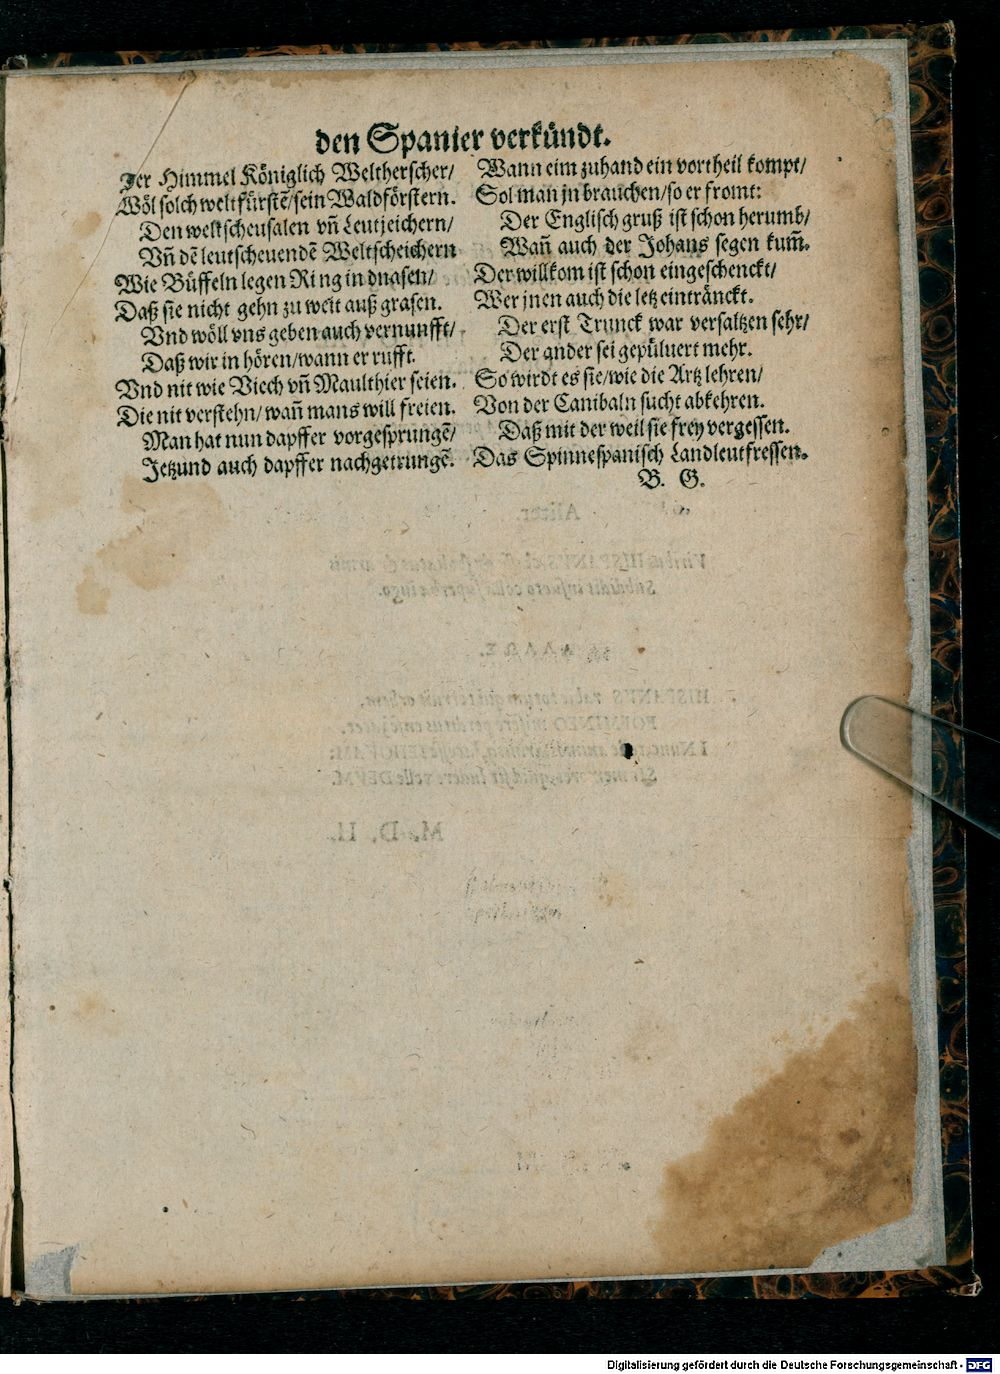 den Spanier verkündt.
Jer Himmel Königlich Weltherscher/
Wöl solch weltfürstẽ/sein Waldförstern.
Den weltscheusalen vñ Leutjeichern/
Vñ dẽ leutscheuendẽ Weltscheichern
Wie Büffeln legen Ring in dnasen/
Daß sie nicht gehn zu weit auß grasen.
Vnd wöll vns geben auch vernunfft/
Daß wir in hören/wann er rufft.
Vnd nit wie Viech vñ Maulthier seien.
Die nit verstehn/wañ mans will freien.
Man hat nun dapffer vorgesprungẽ/
Jetzund auch dapffer nachgetrungẽ.
Wann eim zuhand ein vortheil kompt/
Sol man jn brauchen/so er fromt:
Der Englisch gruß ist schon herumb/
Wañ auch der Johans segen kum̃.
Der willkom ist schon eingeschenckt/
Wer jnen auch die letz eintränckt.
Der erst Trunck war versaltzen sehr/
Der ander sei gepüluert mehr.
So wirdt es sie/wie die Artz lehren/
Von der Canibaln sucht abkehren.
Daß mit der weil sie frey vergessen.
Das Spinnespanisch Landleutfressen.
B. G.
Digitalisierung gefördert durch die Deutsche Forschungsgemeinschaft - DFG